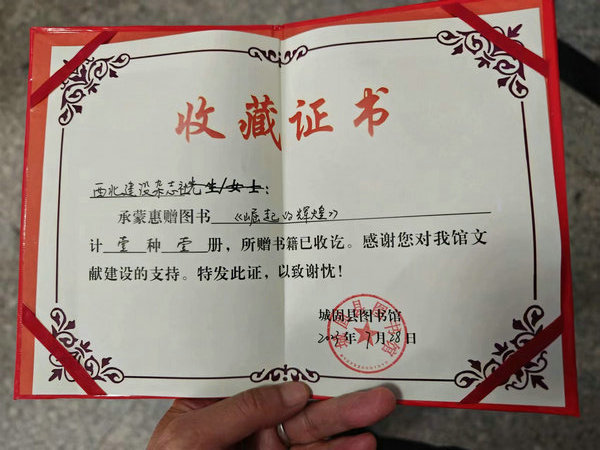 收藏证书
西北建设杂志社先生/女士：
承蒙惠赠图书 《崛起的辉煌》
计 壹 种 壹 册，所赠书籍已收讫。感谢您对我馆文
献建设的支持。特发此证，以致谢忱！
城固县图书馆
年7月28日
城固县图书馆